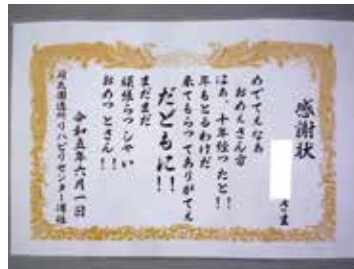 感謝状
さま
めでてえなあ
おめえさん方
はあ、十年経つたと!!
年もとるわけだ
来てもらってありがてえ
だどもに!!
まだまだ
頑張らっしゃい
おめっとさん!!
令和五年六月一日
リハビリセンター